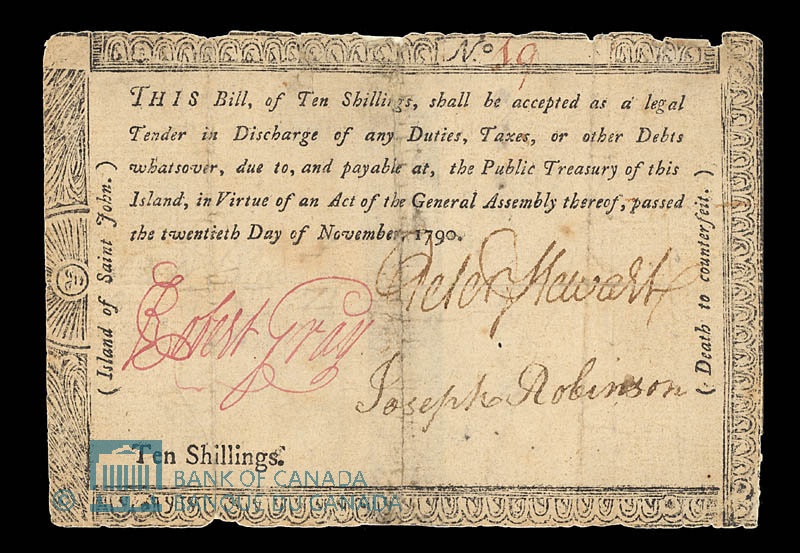 No. 19
THIS Bill, of Ten Shillings, shall be accepted as a legal
Tender in Discharge of any Duties, Taxes, or other Debts
whatsover, due to, and payable at, the Public Treasury of this
Island, in Virtue of an Act of the General Assembly thereof, passed
the twentieth Day of November, 1790.
(Island of Saint John.)
(Death to counterfeit.)
Peter Stewart
Robert Gray
Joseph Robinson
Ten Shillings.
© BANK OF CANADA
BANQUE DU CANADA